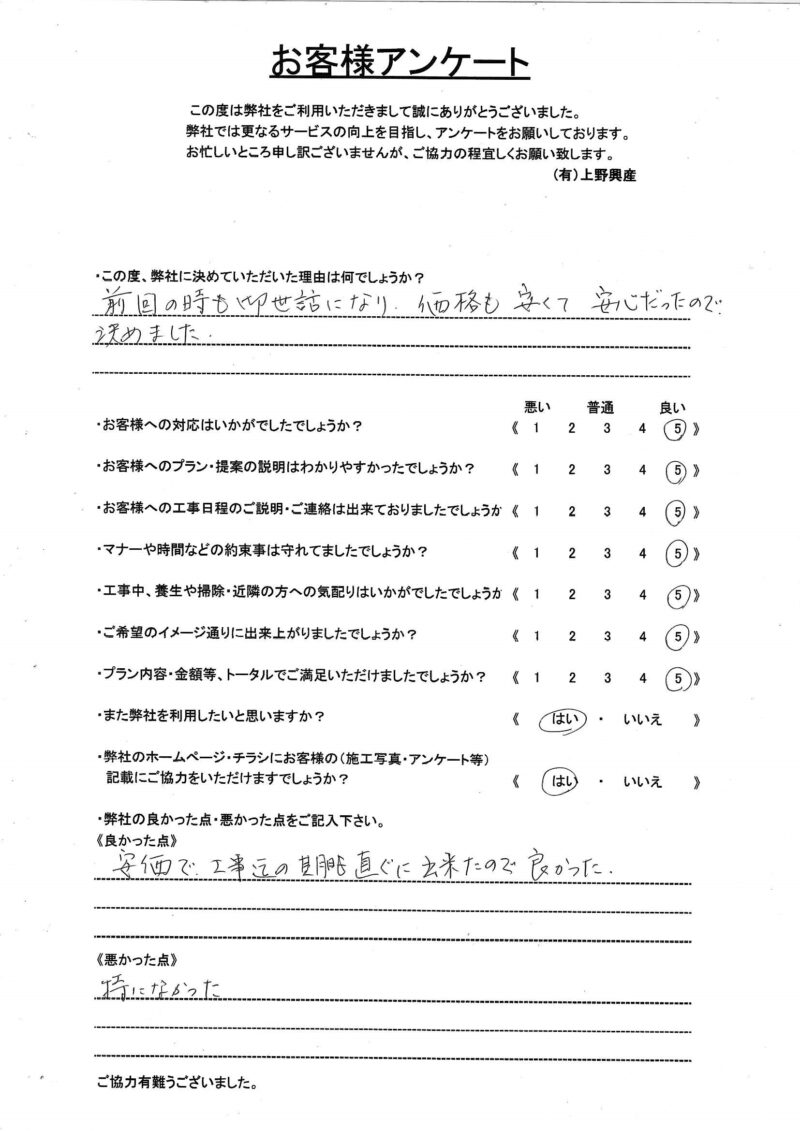 お客様アンケート
この度は弊社をご利用いただきまして誠にありがとうございました。
弊社では更なるサービスの向上を目指し、アンケートをお願いしております。
お忙しいところ申し訳ございませんが、ご協力の程宜しくお願い致します。
(有)上野興産
・この度、弊社に決めていただいた理由は何でしょうか？
前回の時も御世話になり、価格も安くて 安心だったので
決めました.
悪い 普通 良い
・お客様への対応はいかがでしたでしょうか？ 《 1 2 3 4 5 》
・お客様へのプラン・提案の説明はわかりやすかったでしょうか？ 《 1 2 3 4 5 》
・お客様への工事日程のご説明・ご連絡は出来ておりましたでしょうか 《 1 2 3 4 5 》
・マナーや時間などの約束事は守れてましたでしょうか？ 《 1 2 3 4 5 》
・工事中、養生や掃除・近隣の方への気配りはいかがでしたでしょうか 《 1 2 3 4 5 》
・ご希望のイメージ通りに出来上がりましたでしょうか？ 《 1 2 3 4 5 》
・プラン内容・金額等、トータルでご満足いただけましたでしょうか？ 《 1 2 3 4 5 》
・また弊社を利用したいと思いますか？ 《 はい ・ いいえ 》
・弊社のホームページ・チラシにお客様の（施工写真・アンケート等）
記載にご協力をいただけますでしょうか？ 《 はい ・ いいえ 》
・弊社の良かった点・悪かった点をご記入下さい。
《良かった点》
安価で、工事迄の期間も直ぐに出来たので良かった.
《悪かった点》
特になかった
ご協力有難うございました。